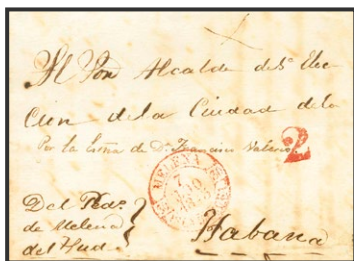 Al Sor Alcalde de 1ª Elec
cion de la Ciudad de la
Por la Esma de Dn Francisco Valerio
2
MELENA
7
Del Pedo.
de Melena
del Sud
Habana